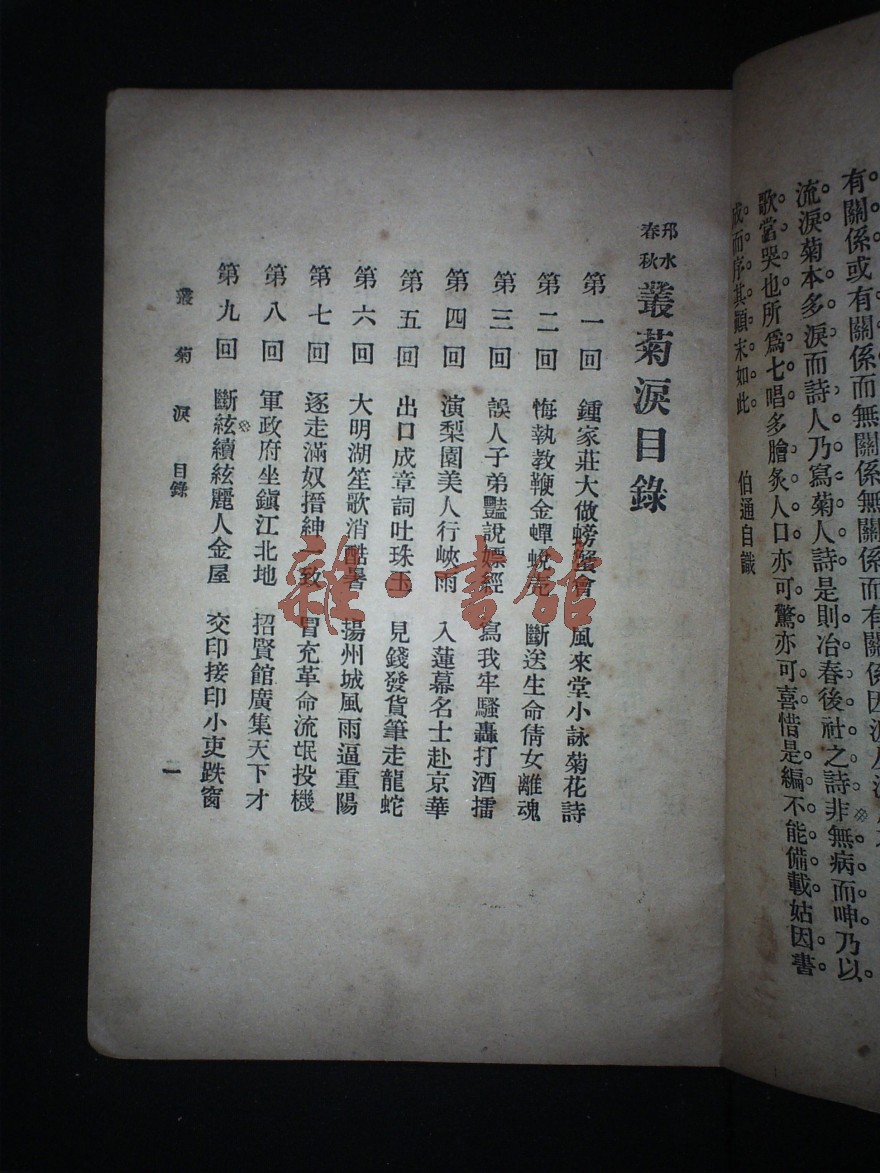 有關係或有關係而無關係無關係而有關係因
流淚菊本多淚而詩人乃寫菊人詩是則冶春後社之詩非無病而呻乃以
歌當哭也所爲七唱多膾炙人口亦可驚亦可喜惜是編不能備載姑因書
成而序其顚末如此
伯通自識
邗水春秋 叢菊淚目錄
第一回 鍾家莊大做螃蟹會 風來堂小詠菊花詩
第二回 悔執教鞭金蟬蛻壳 斷送生命倩女離魂
第三回 誤人子弟豔說嫖經 寫我牢騷轟打酒擂
第四回 演梨園美人行峽雨 入蓮幕名士赴京華
第五回 出口成章詞吐珠玉 見錢發貨筆走龍蛇
第六回 大明湖笙歌消酷暑 揚州城風雨逼重陽
第七回 逐走滿奴搢紳一致 冒充革命流氓投機
第八回 軍政府坐鎭江北地 招賢館廣集天下才
第九回 斷絃續絃麗人金屋 交印接印小吏跌窗
叢菊淚 目錄 一
雜·書館